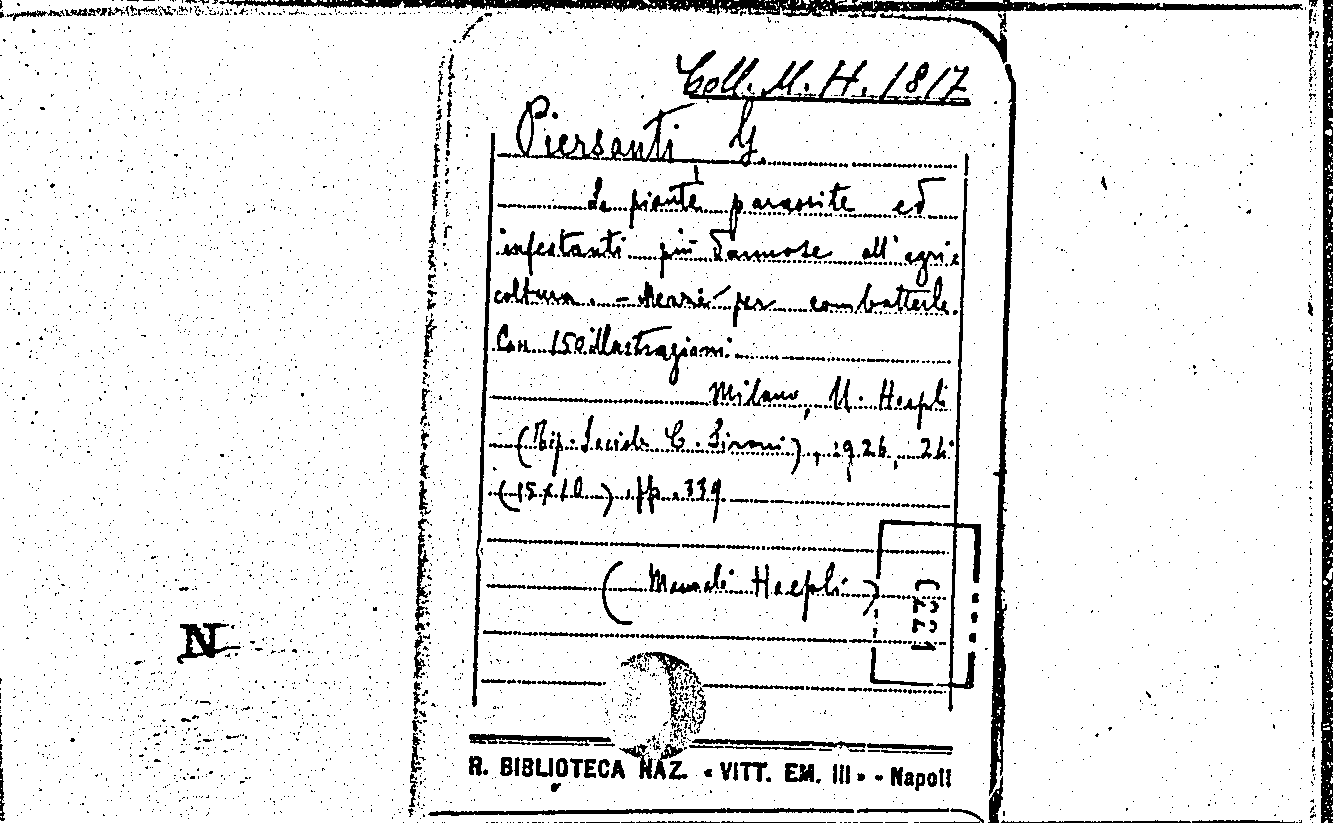 Coll. M. H. 1817
Piersanti G.
Le piante parassite ed
infestanti più dannose all'agri=
coltura. - Mezzi per combatterle.
Con 150 illustrazioni.
Milano, U. Hoepli
(Tip. Sociale C. Sironi), 1926, 24°
(15x10), pp. 339
(Manuali Hoepli)
N
R. BIBLIOTECA NAZ. « VITT. EM. III » - Napoli